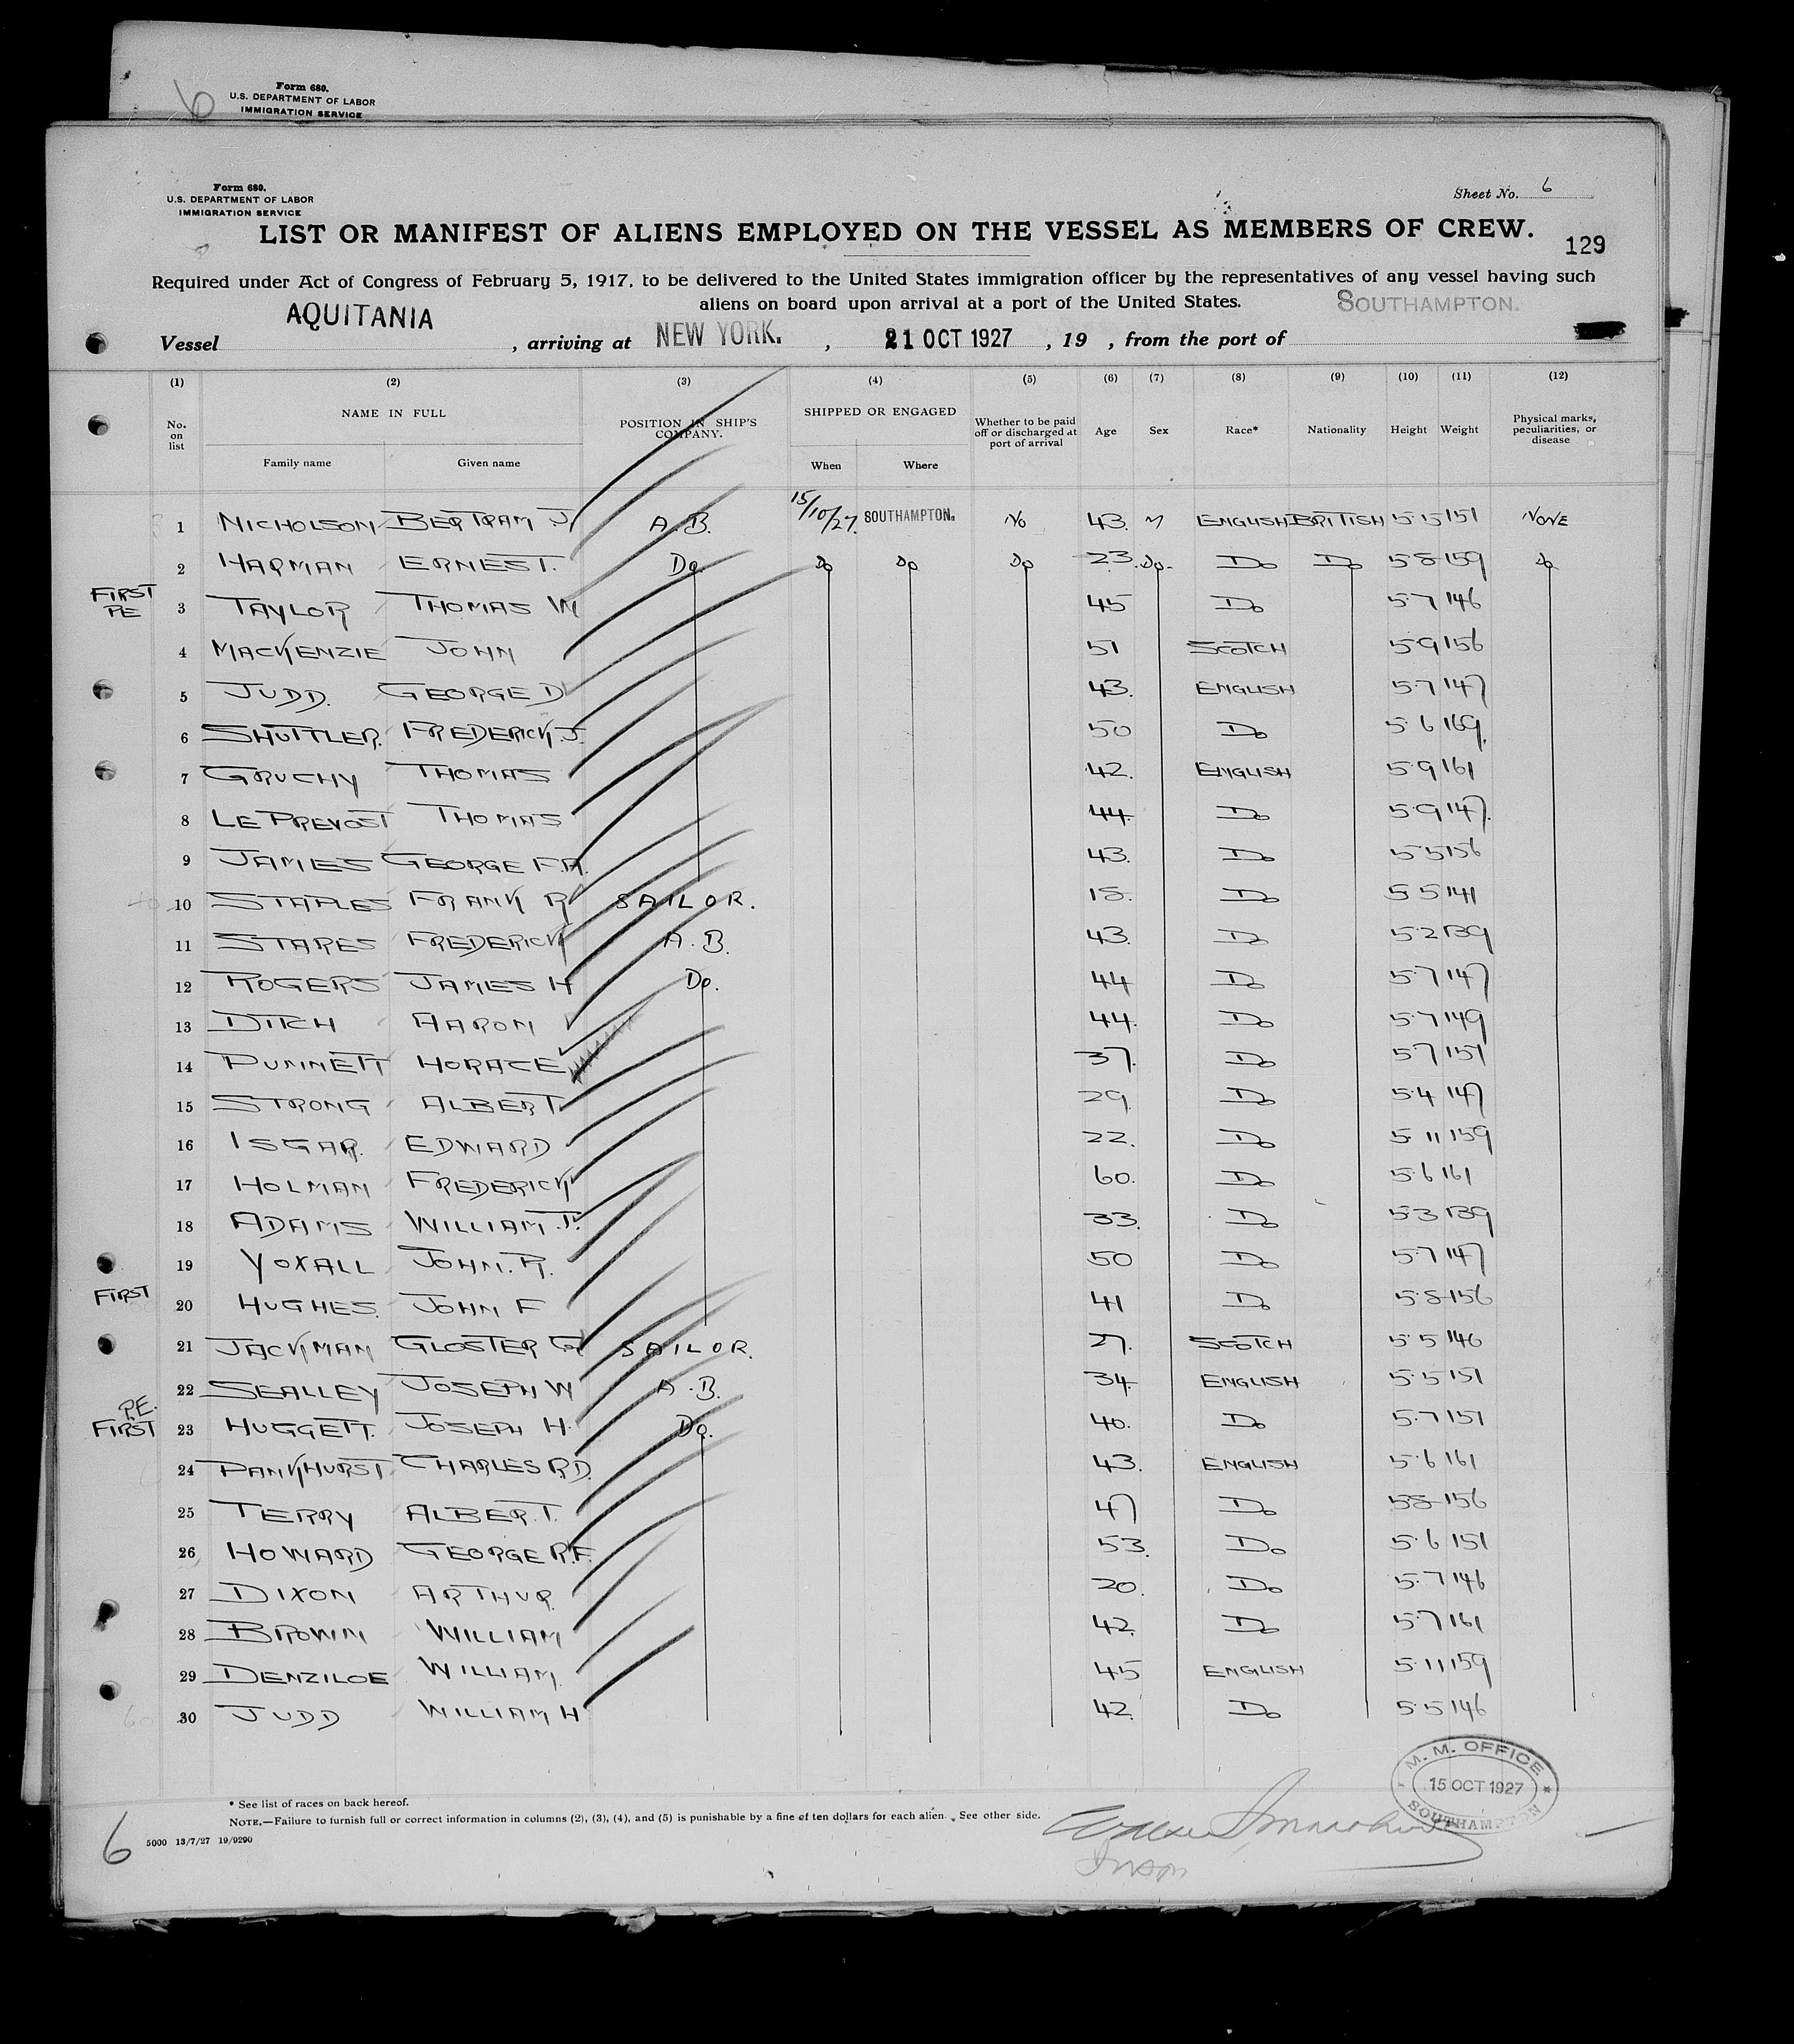 6
Form 680.
U.S. DEPARTMENT OF LABOR
IMMIGRATION SERVICE
Form 680.
U.S. DEPARTMENT OF LABOR
IMMIGRATION SERVICE
Sheet No. 6
LIST OR MANIFEST OF ALIENS EMPLOYED ON THE VESSEL AS MEMBERS OF CREW.
129
Required under Act of Congress of February 5, 1917, to be delivered to the United States immigration officer by the representatives of any vessel having such
aliens on board upon arrival at a port of the United States.
Vessel AQUITANIA, arriving at NEW YORK., 21 OCT 1927, 19 , from the port of SOUTHAMPTON.
(1) (2) (3) (4) (5) (6) (7) (8) (9) (10) (11) (12)
No. on list NAME IN FULL Family name Given name POSITION IN SHIP'S COMPANY. SHIPPED OR ENGAGED When Where Whether to be paid off or discharged at port of arrival Age Sex Race* Nationality Height Weight Physical marks, peculiarities, or disease
1 NICHOLSON BERTRAM J A.B. 15/10/27. SOUTHAMPTON. No 43. M ENGLISH BRITISH 5·5 151 NONE
2 HARMAN ERNEST. Do. Do Do Do 23. Do. Do Do 5·8 159 Do
FIRST PE 3 TAYLOR THOMAS W 45 Do 5·7 146
4 MACKENZIE JOHN 51 SCOTCH 5·9 156
5 JUDD. GEORGE D 43. ENGLISH 5·7 147
6 SHUTTLER. FREDERICK J. 50 Do 5·6 169.
7 GRUCHY THOMAS 42. ENGLISH 5·9 161
8 LE PREVOST THOMAS 44. Do 5·9 147.
9 JAMES GEORGE F.A. 43. Do 5·5 156
10 STAPLES FRANK R SAILOR. 18. Do 5 5 141
11 STARES FREDERICK A.B. 43. Do 5·2 139
12 ROGERS JAMES H Do. 44 Do 5·7 147
13 DITCH AARON 44. Do 5·7 149
14 PUNNETT HORACE 37. Do 5·7 151
15 STRONG ALBERT 29. Do 5·4 147
16 ISGAR. EDWARD 22. Do 5·11 159
17 HOLMAN FREDERICK 60. Do 5·6 161
18 ADAMS WILLIAM J. 33. Do 5·3 139
19 YOXALL JOHN. R. 50 Do 5·7 147
FIRST 20 HUGHES. JOHN F 41 Do 5·8 156
21 JACKMAN GLOSTER G. SAILOR. 27. SCOTCH 5·5 146
22 SEALLEY JOSEPH W A.B. 34 ENGLISH 5·5 151
P.E. FIRST 23 HUGGETT. JOSEPH H. Do. 40. Do 5·7 151
24 PANKHURST CHARLES R.D. 43. ENGLISH 5·6 161
25 TERRY ALBER.T. 47 Do 5·8 156
26 HOWARD GEORGE R.F. 53. Do 5·6 151
27 DIXON ARTHUR. 20. Do 5·7 146
28 BROWN WILLIAM 42. Do 5·7 161
29 DENZILOE WILLIAM. 45 ENGLISH 5·11 159
30 JUDD WILLIAM H. 42. Do 5·5 146
M. M. OFFICE
15 OCT 1927
SOUTHAMPTON
* See list of races on back hereof.
NOTE.—Failure to furnish full or correct information in columns (2), (3), (4), and (5) is punishable by a fine of ten dollars for each alien. See other side.
6
5000 13/7/27 19/9290